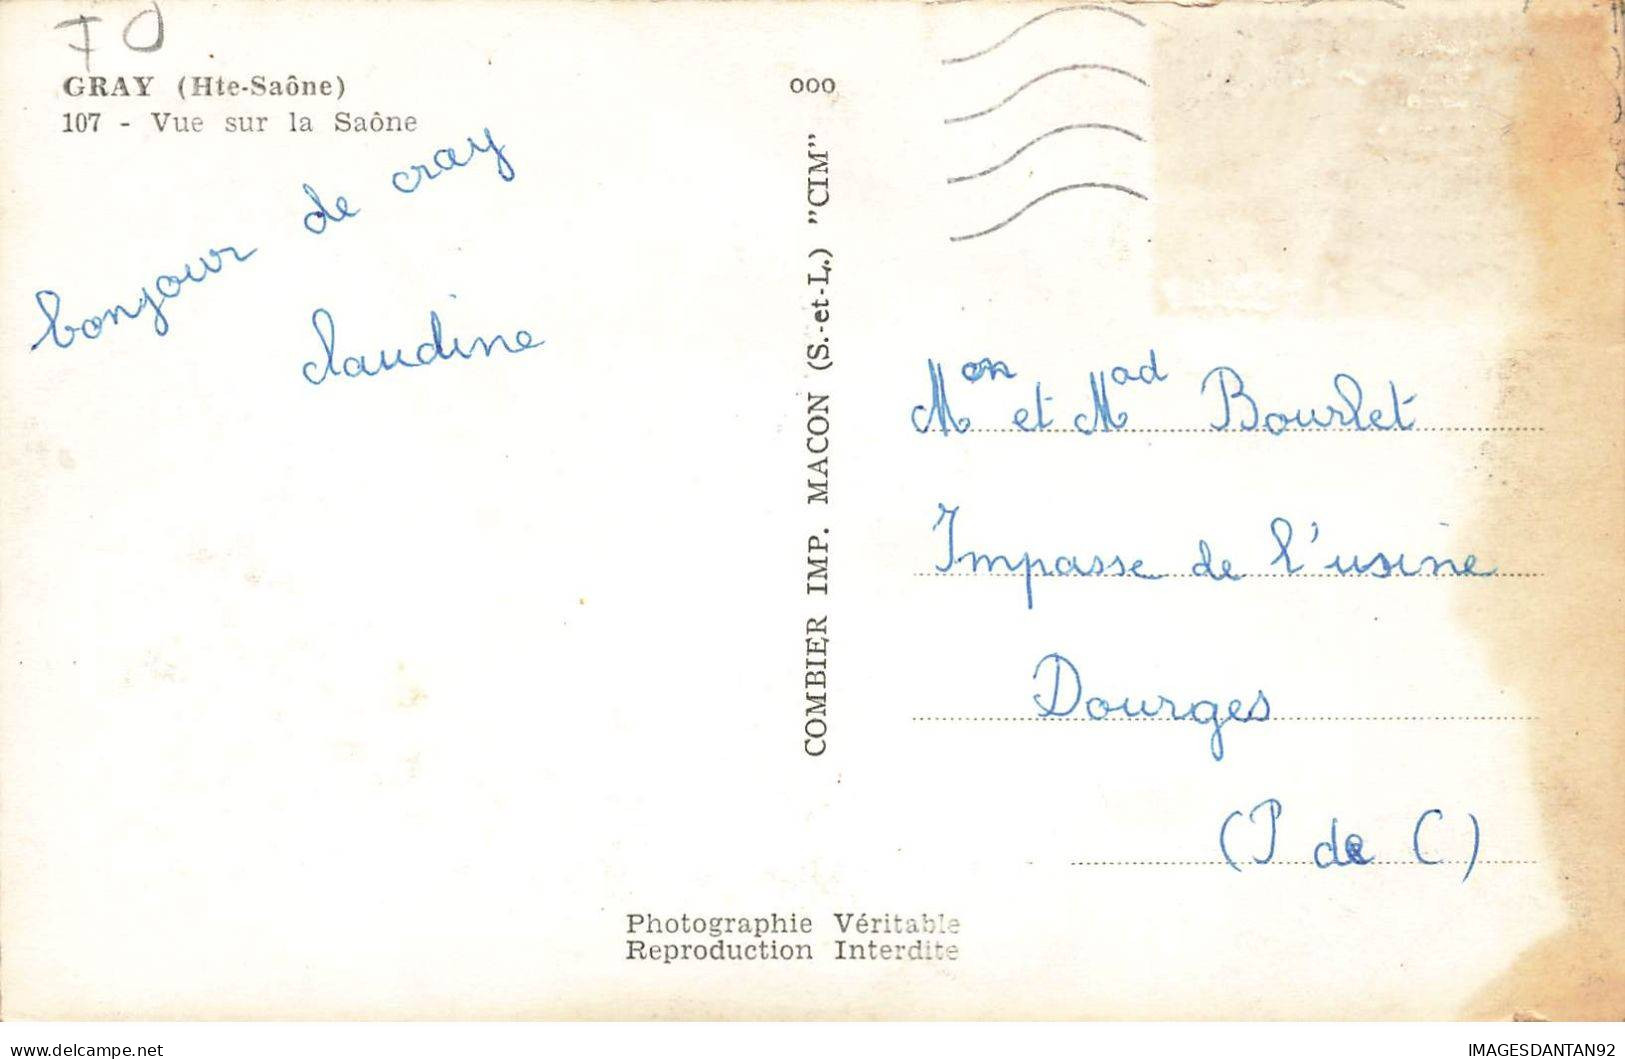 70
GRAY (Hte-Saône)
107 - Vue sur la Saône
bonjour de cray
claudine
ooo
COMBIER IMP. MACON (S.-et-L.) "CIM"
Mon et Mad Bourlet
Impasse de l'usine
Dourges
(P de C)
Photographie Véritable
Reproduction Interdite
delcampe.net
IMAGESDANTAN92